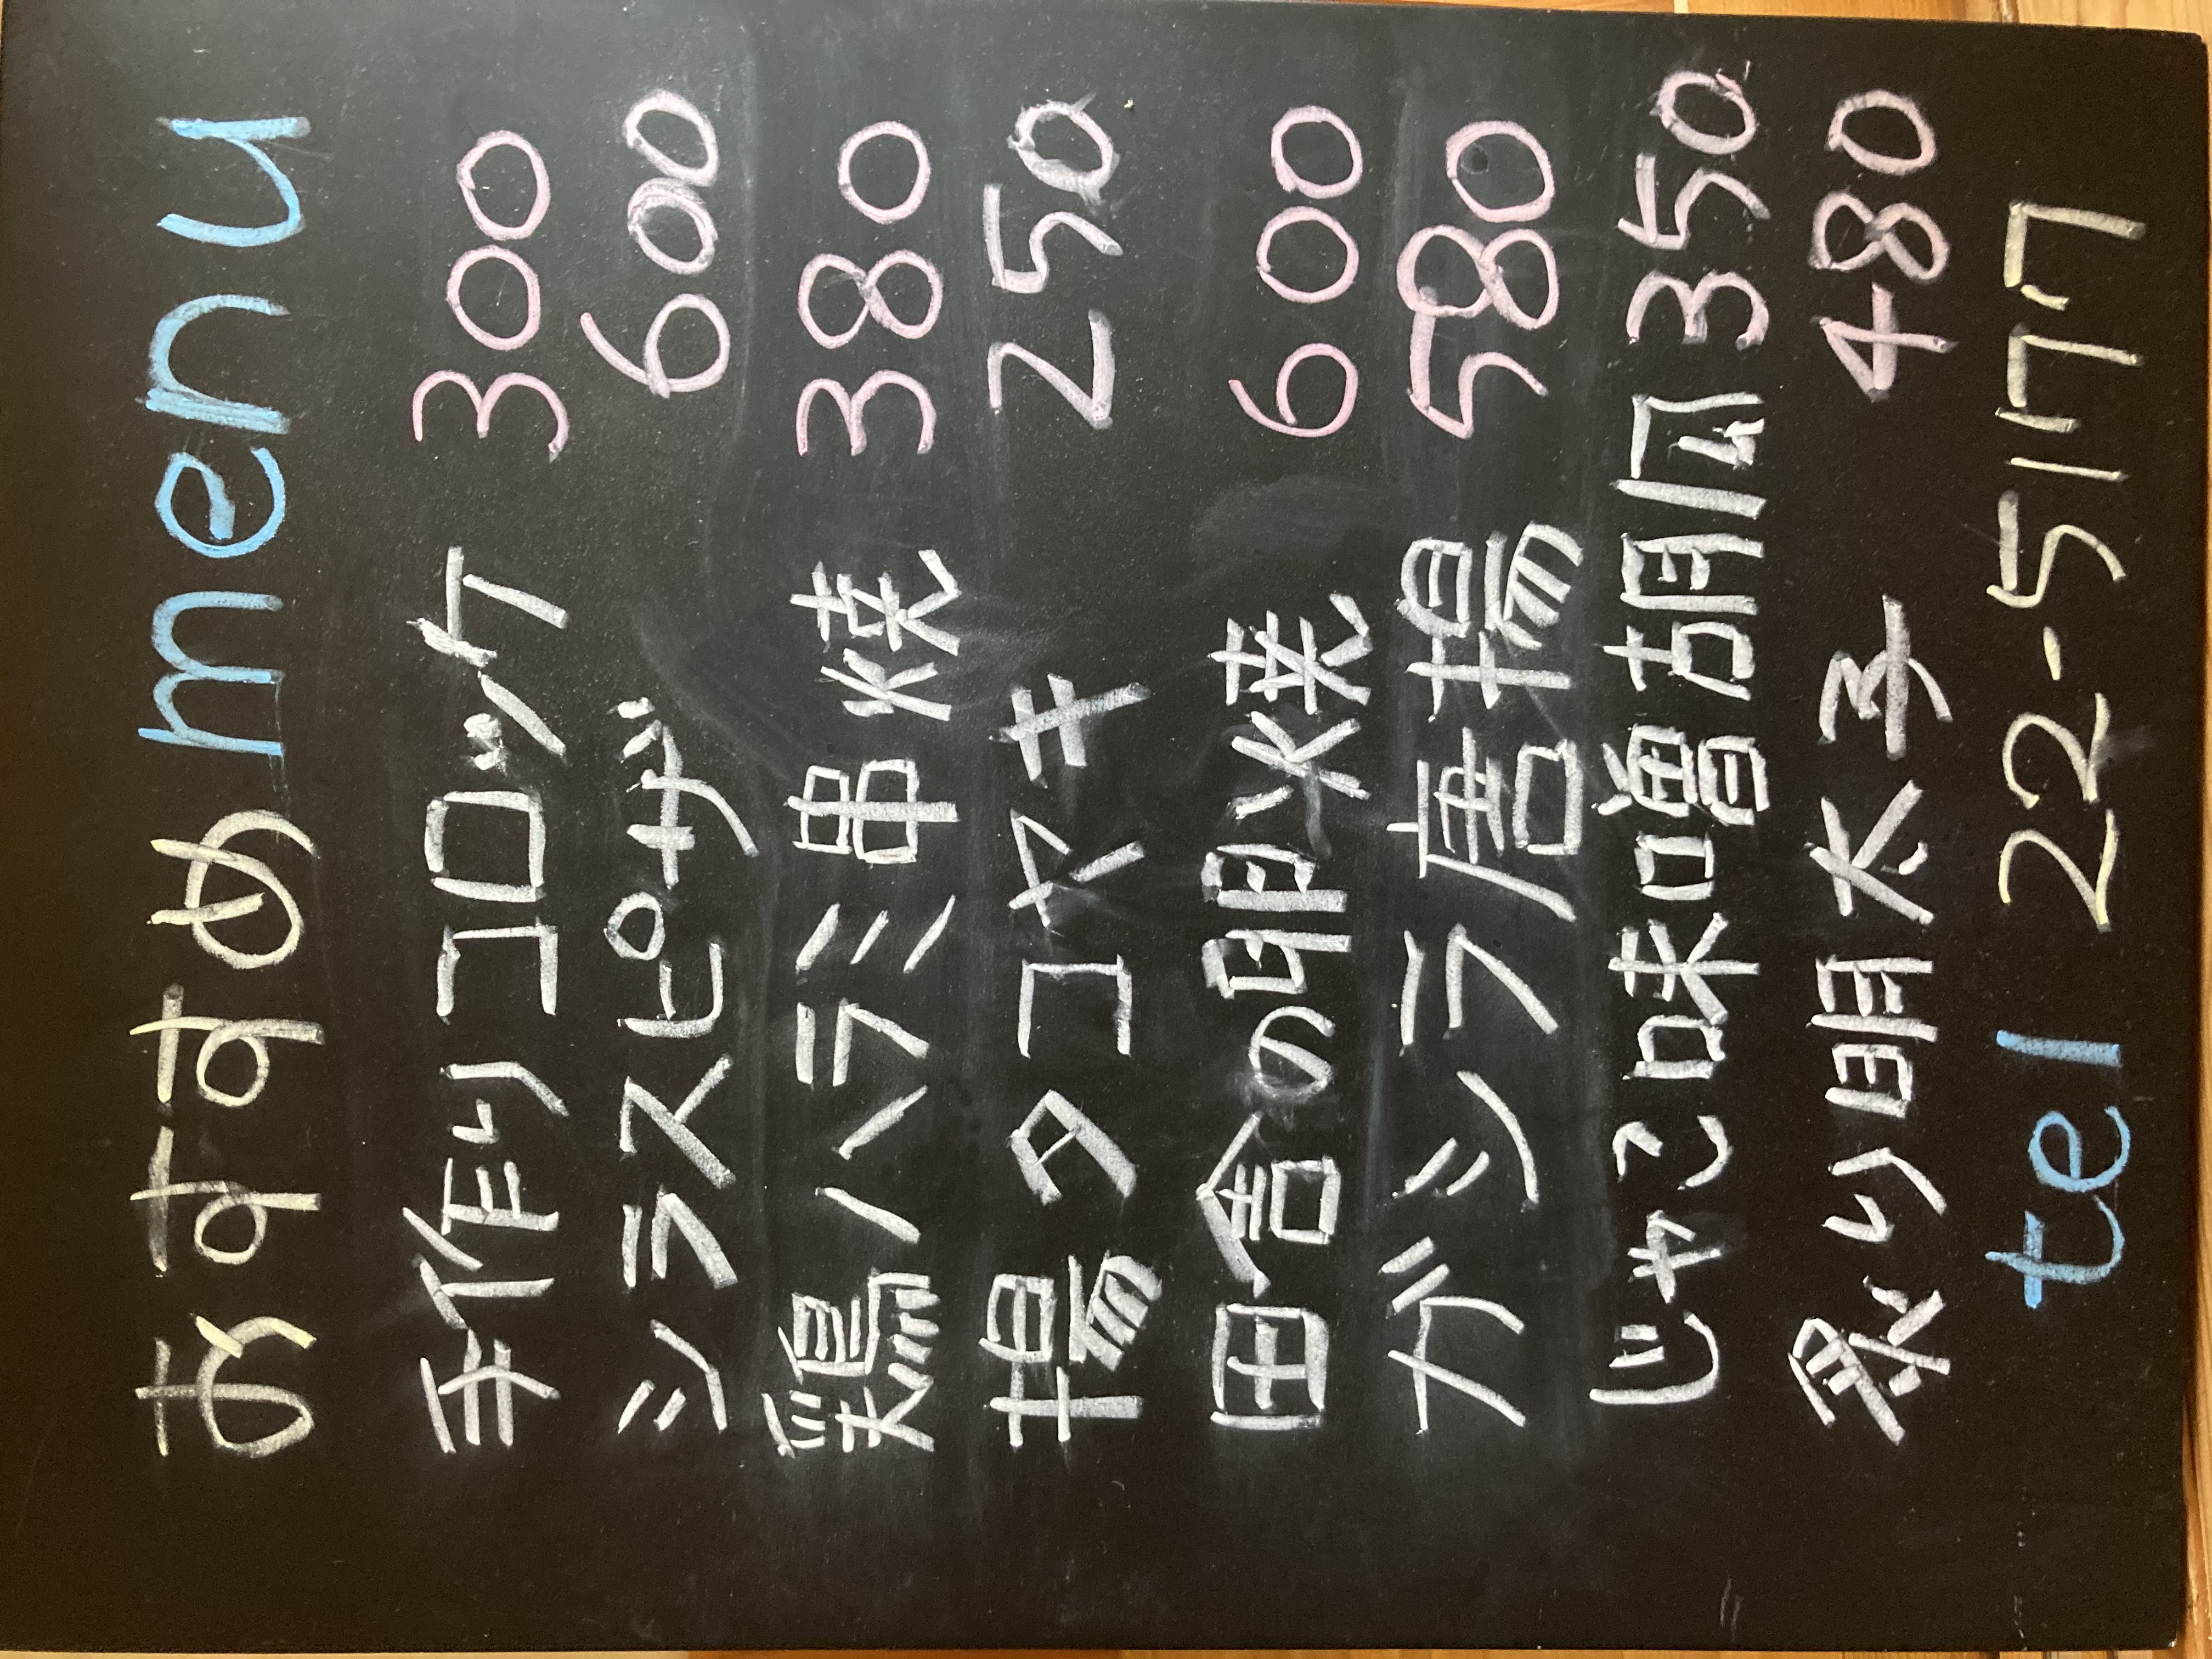 おすすめ menu
手作りコロッケ 300
シラスピザ 600
鶏ハラミ串焼 380
揚タコヤキ 250
田舎の卵焼 600
ガシラ唐揚 580
じゃこ味噌胡瓜 350
炙り明太子 480
tel 22-5177